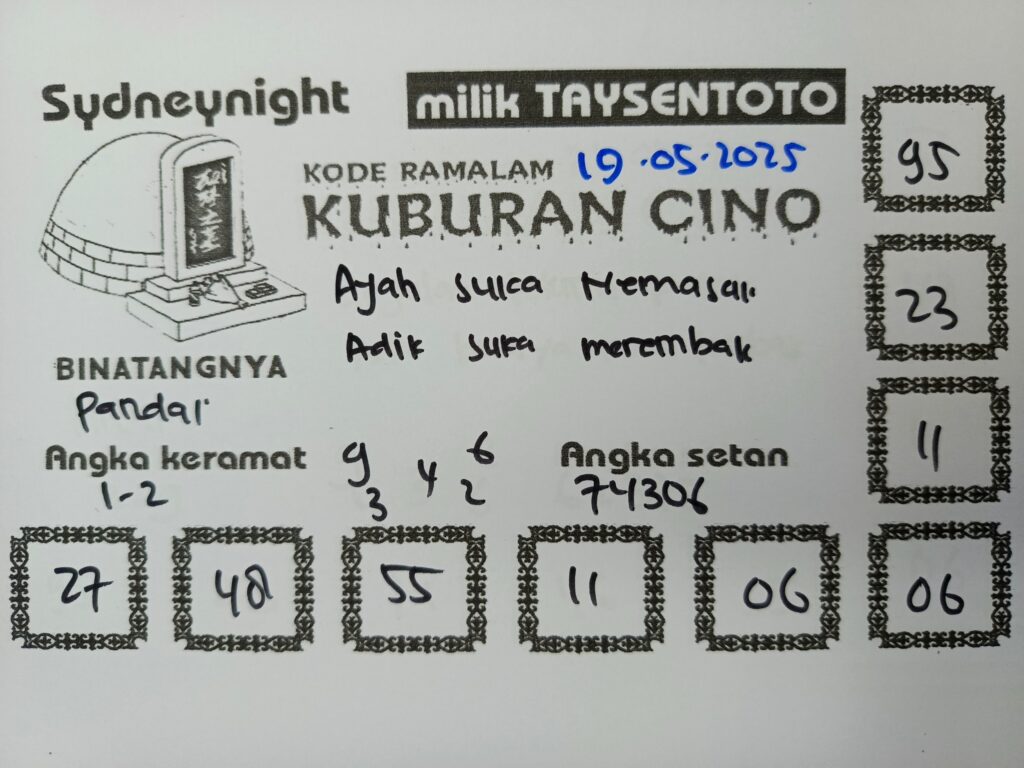 Sydneynight
milik TAYSENTOTO
KODE RAMALAM 19.05.2025
KUBURAN CINO
Ayah suka Memasak
Adik suka merembak
BINATANGNYA
Pandai
Angka keramat
1-2
9 4 6
3 2
Angka setan
74306
95
23
11
27 48 55 11 06 06